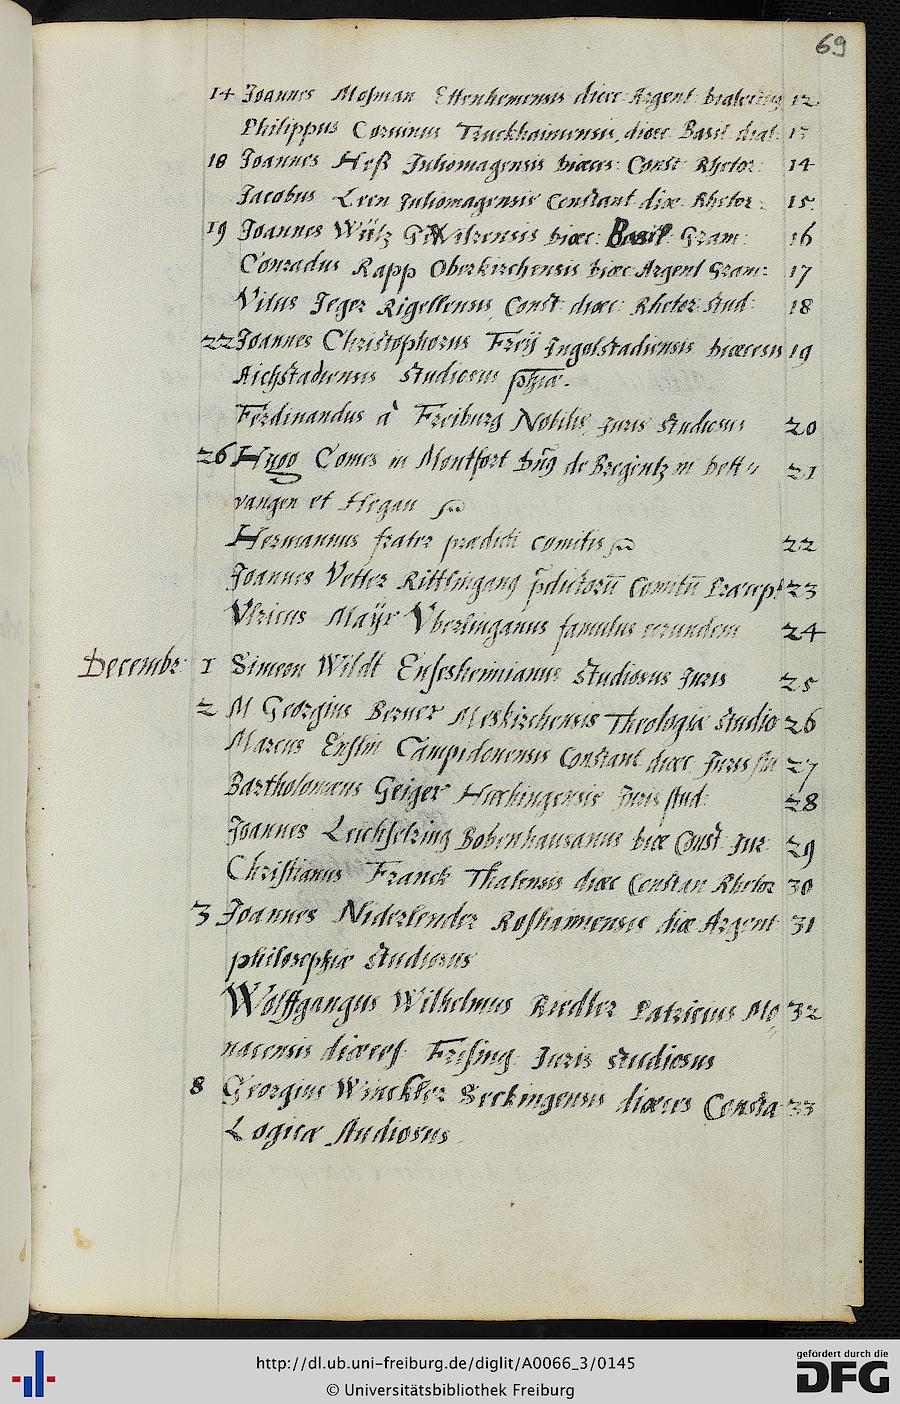 69
14 Joannes Mosman Ettenhemensis dioec: Argent 12
Philippus Coruinus Truckhaimensis, dioec Basil dial. 13
18 Joannes Heß Juliomagensis dioeces: Const Rhetor: 14
Jacobus Leen Juliomagensis Constant dioe Rhetor: 15
19 Joannes Wülz dioec: Basil Gram: 16
Conradus Rapp Oberkirchensis dioec Argent Gram: 17
Vitus Jeger Rigellensis, Const dioec: Rhetor: stud: 18
22 Joannes Christophorus Freÿ Ingolstadiensis dioecesis 19
Aichstadiensis studiosus phiae.
Ferdinandus à Freiburg Nobilis, Juris studiosus 20
26 Hugo Comes in Montfort de Bregentz in Dett 21
nangen et Hegau
Hermannus frater praedicti comitis 22
Joannes Vetter Rittlingang pdictorū Comitū Praecept 23
Vlricus Maÿr Vberlinganus famulus eorundem 24
Decembr: 1 Simeon Wildt Ensesheimianus studiosus Juris 25
2 M Georgius Berner Meskirchensis Theologiae studio 26
Marcus Enslin Campidonensis Constant dioec Juris stu 27
Bartholomaeus Geiger Haechingensis Juris stud: 28
Joannes Leichselring Bobenhausanus dioe Const: Jur: 29
Christianus Franck Thalensis dioec Constan Rhetor 30
3 Joannes Niderlender Roshaimensis dioe Argent 31
philosophiae studiosus
Wolffgangus Wilhelmus Riedler Patricius Mo 32
nacensis dioeces: Frising: Juris studiosus
8 Georgius Winckler Seckingensis dioeces Consta 33
Logicae studiosus.
http://dl.ub.uni-freiburg.de/diglit/A0066_3/0145
© Universitätsbibliothek Freiburg
gefördert durch die
DFG